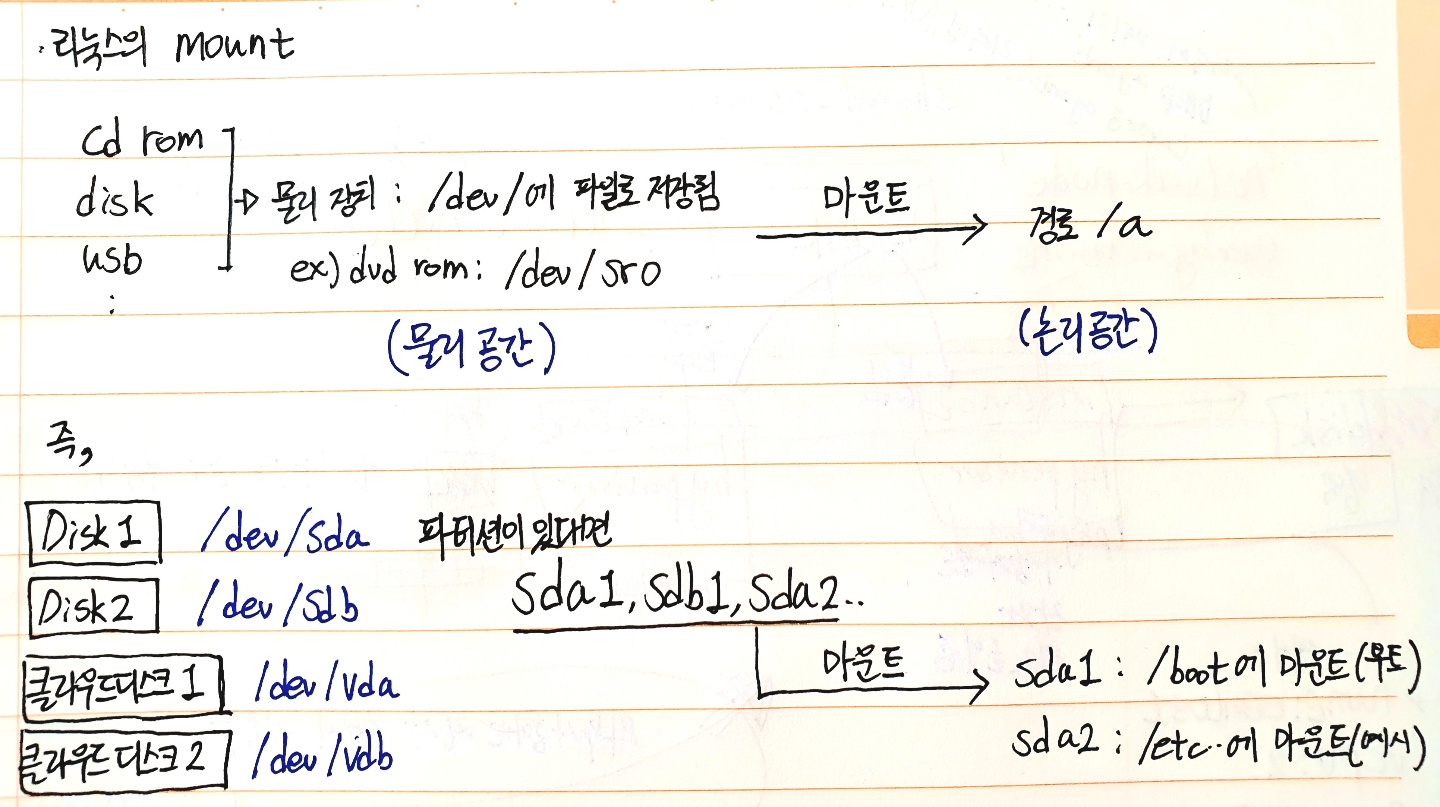 · 리눅스의 mount
cd rom
disk
usb
:
물리 장치 : /dev/에 파일로 저장됨
ex) dvd rom : /dev/sr0
(물리 공간)
마운트
경로 /a
(논리공간)
즉,
Disk 1 /dev/sda 파티션이 있다면
Disk 2 /dev/sdb sda1, sdb1, sda2..
클라우드디스크 1 /dev/vda
클라우드 디스크 2 /dev/vdb
마운트
sda1 : /boot에 마운트(무토)
sda2 : /etc..에 마운트(예시)